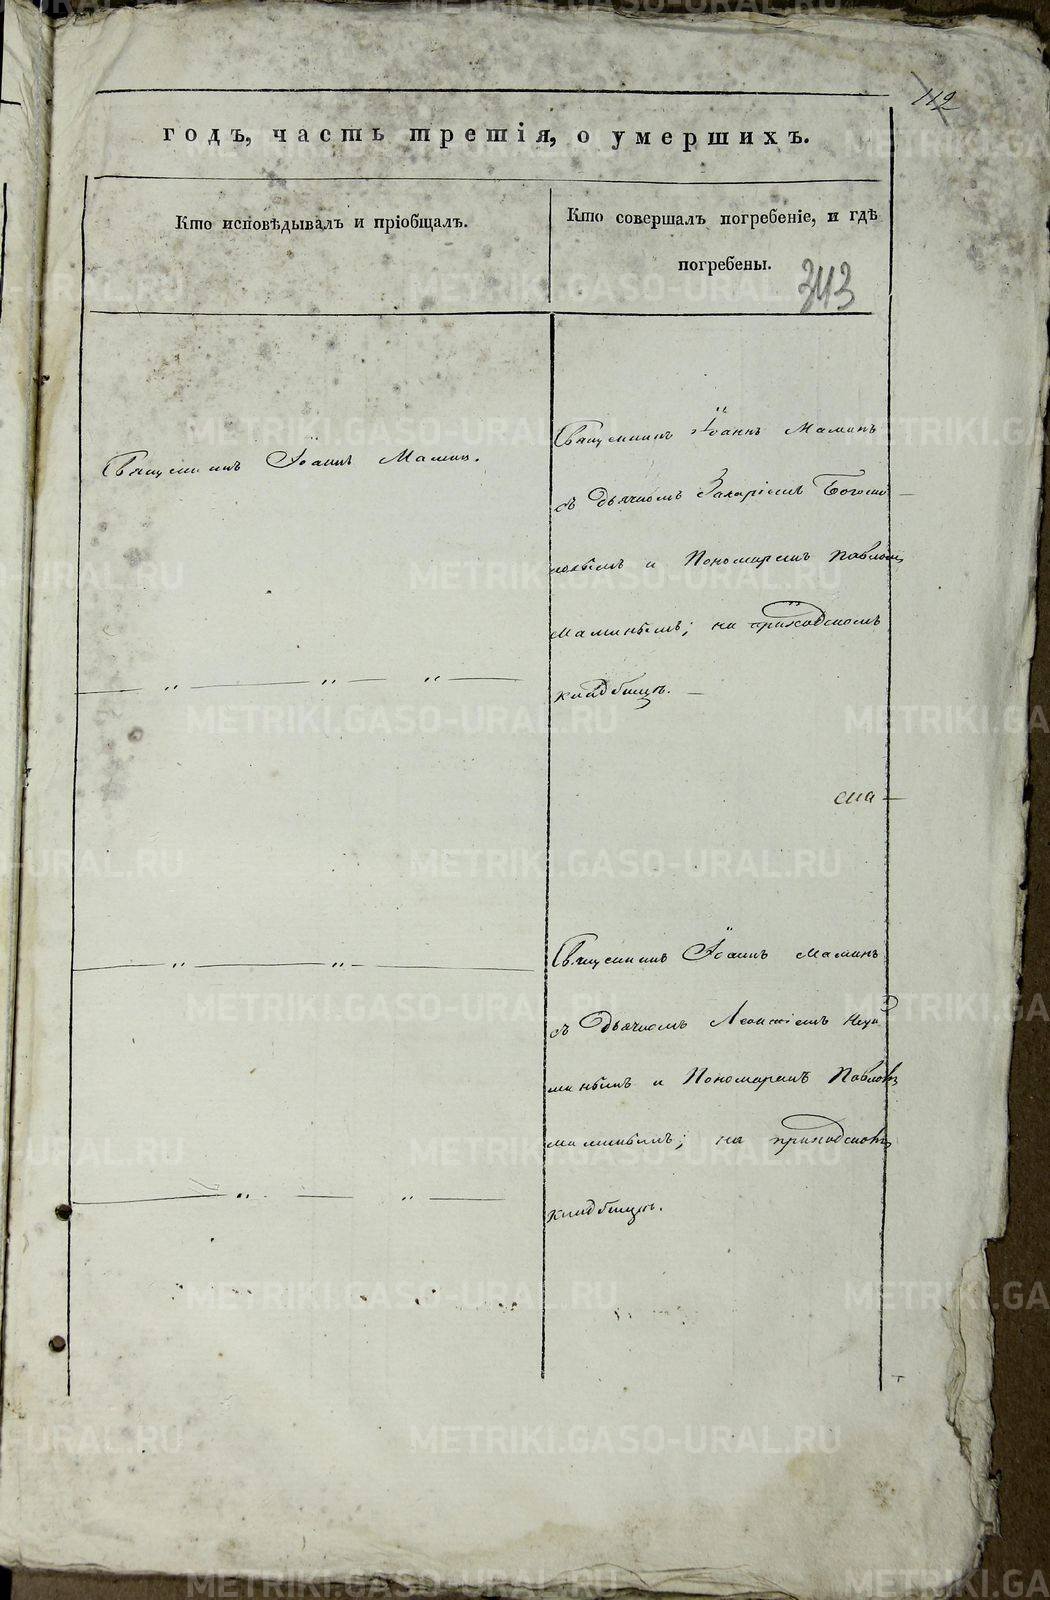 112
годъ, часть третія, о умершихъ.
Кто исповѣдывалъ и пріобщалъ.
Кто совершалъ погребеніе, и гдѣ
погребены.
343
Священникъ Іоаннъ Маминъ.
Священникъ Іоаннъ Маминъ
съ дьячкомъ Захаріемъ
и Пономаремъ Павломъ
Маминымъ; на приходскомъ
кладбищѣ.
Священникъ Іоаннъ Маминъ
съ дьячкомъ Леонтіемъ
и Пономаремъ Павломъ
Маминымъ; на приходскомъ
кладбищѣ.
METRIKI.GASO-URAL.RU